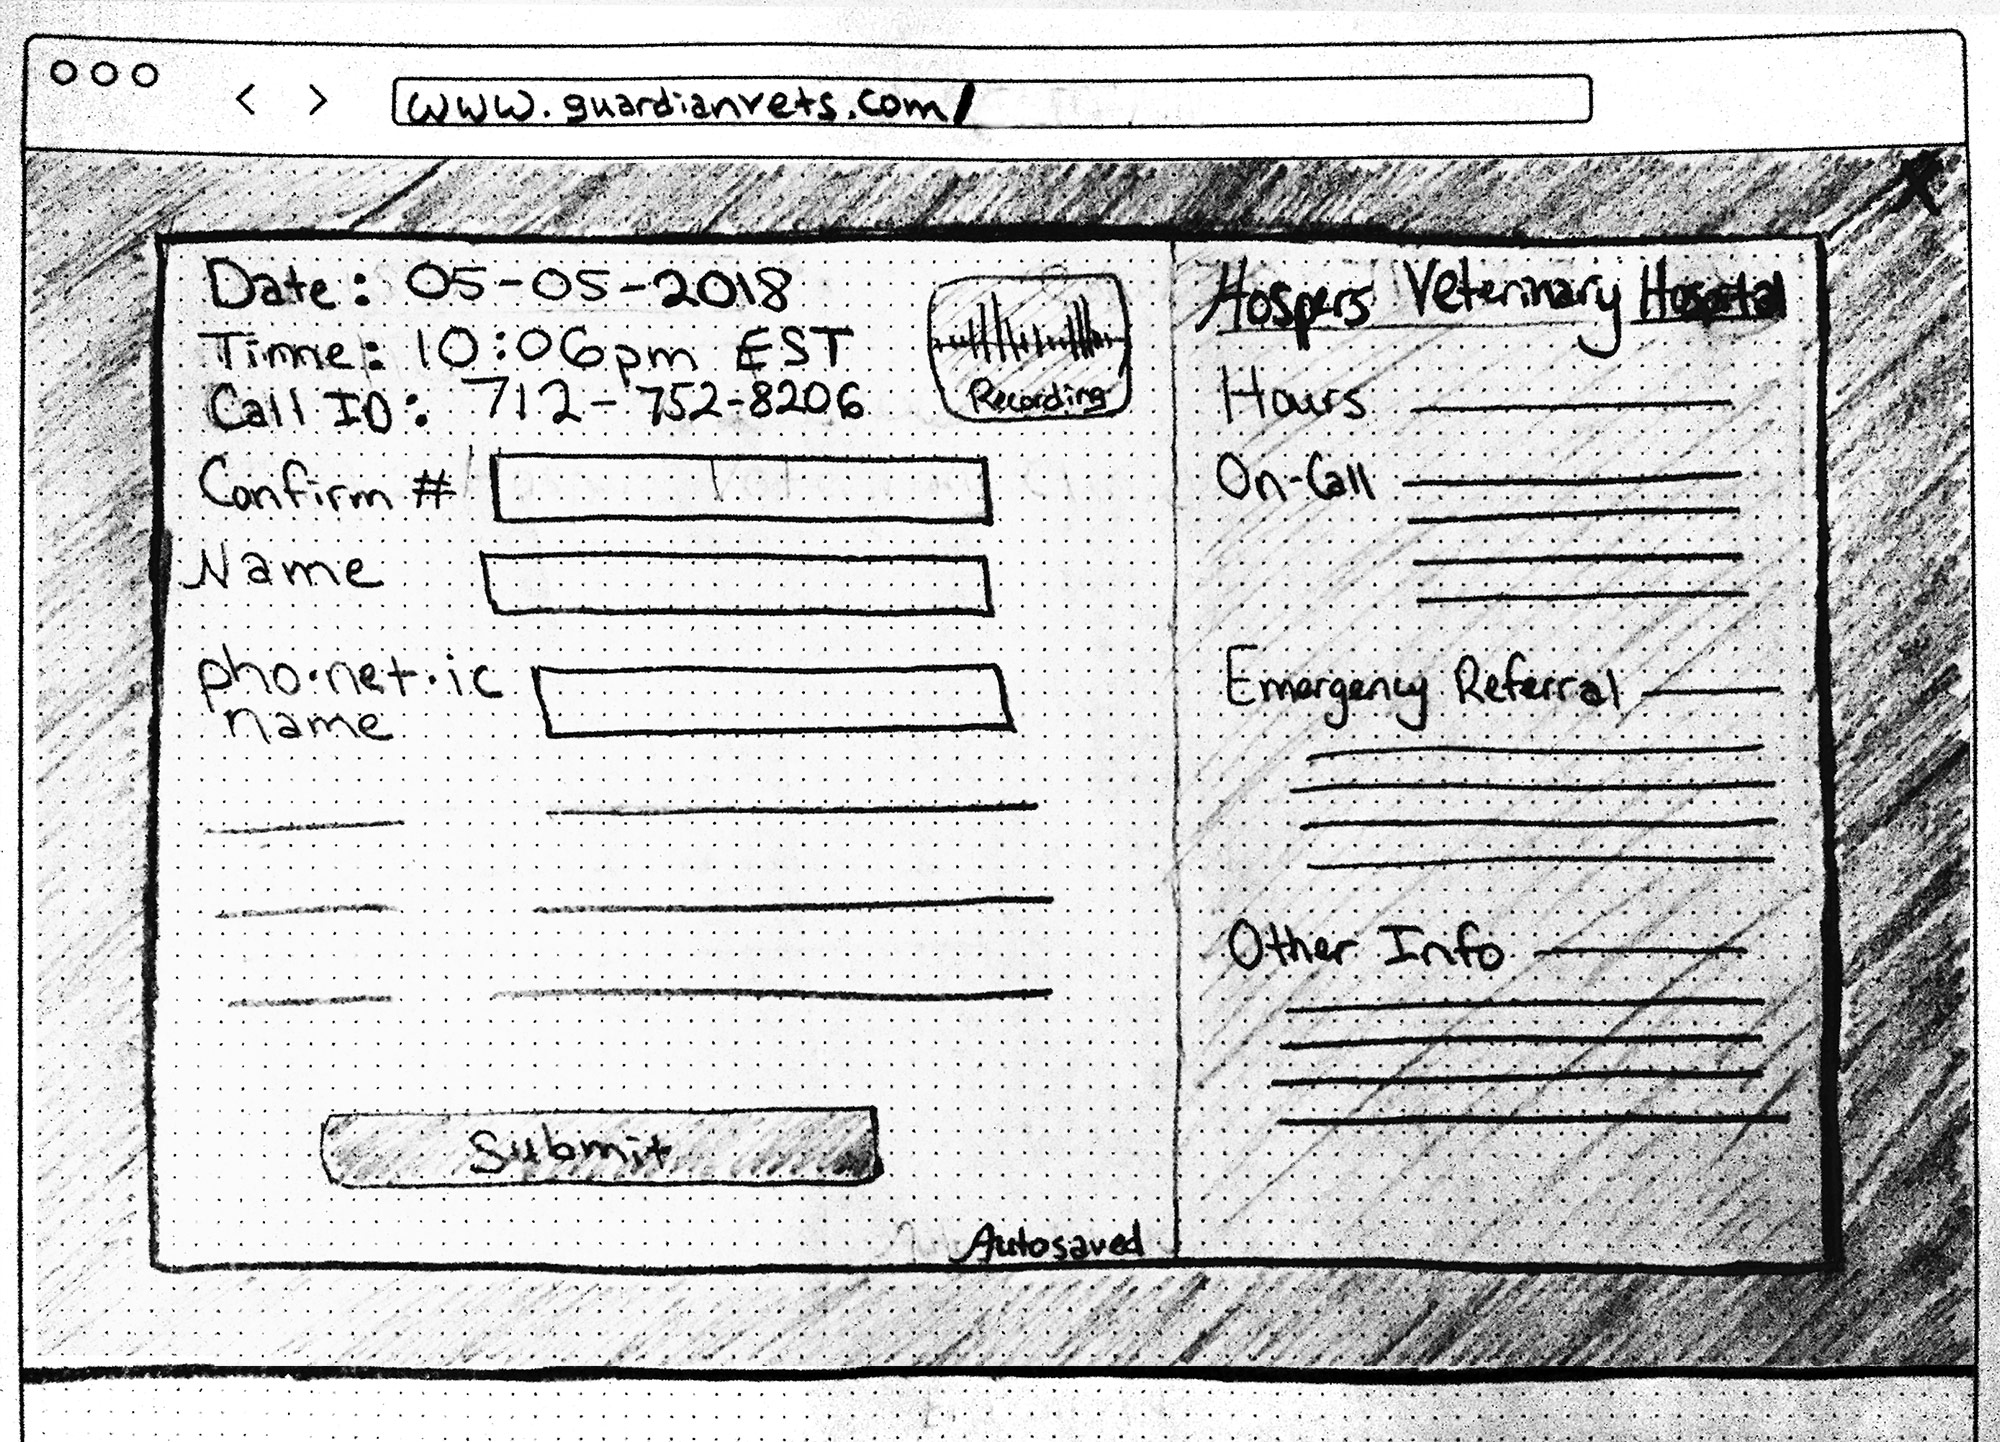 www.guardianvets.com/
Date: 05-05-2018
Time: 10:06pm EST
Call ID: 712-752-8206
Recording
Confirm #
Name
pho·net·ic
name
Submit
Autosaved
Hospers Veterinary Hospital
Hours
On-Call
Emergency Referral
Other Info
X